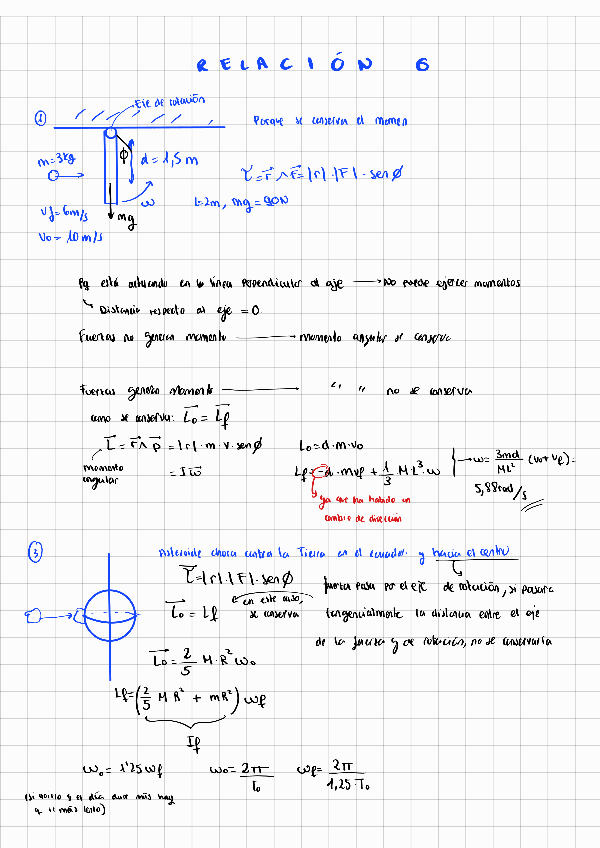 RELACIÓN 6
① Eje de rotación
Porque se conserva el momen
m=3kg
ϕ
d = 1,5 m
τ = r⃗ ∧ F⃗ = |r| · |F| · sen ϕ
ω
L=2m, mg = 90N
Vf = 6m/s
mg
Vo = 10 m/s
Pq está actuando en la línea perpendicular al eje → No puede ejercer momentos
Distancia respecto al eje = 0
Fuerzas no generan momento → momento angular se conserva
Fuerzas genera momento → " " no se conserva
como se conserva: L⃗o = L⃗f
L⃗ = r⃗ ∧ p⃗ = |r| · m · v · sen ϕ
Lo = d · m · vo
momento angular
= I ω⃗
Lf = -d · mvf + 1/3 M L² · ω
→ ω = 3md/ML² (vo + vf) =
5,88 rad/s
ya que ha habido un
cambio de dirección
③ Asteroide choca contra la Tierra en el ecuador y hacia el centro
τ = |r| · |F| · sen ϕ
fuerza pasa por el eje de rotación, si pasara
L⃗o = Lf
en este caso,
se conserva
tangencialmente la distancia entre el eje
de la fuerza y de rotación, no se conservaría
L⃗o = 2/5 M · R² ωo
Lf = (2/5 M R² + mR²) ωf
If
ωo = 1'25 ωf
ωo = 2π/To
ωf = 2π/1,25 · To
y el día dure más hay
q ir más lento)